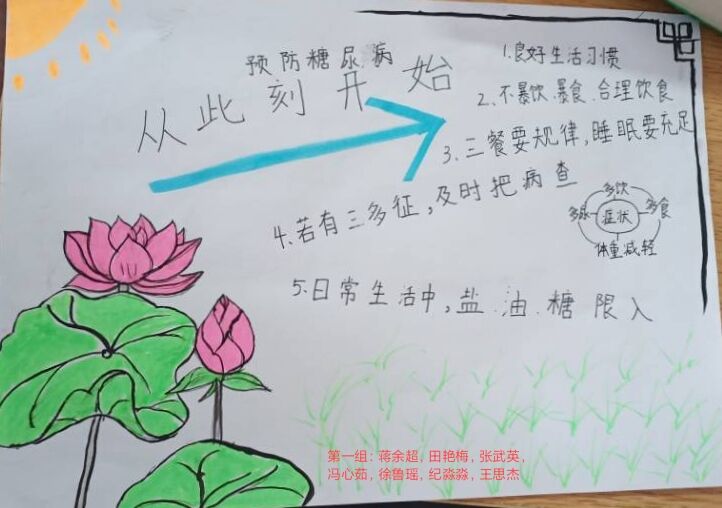 预防糖尿病
从此刻开始
1.良好生活习惯
2、不暴饮.暴食.合理饮食
3.三餐要规律,睡眠要充足
4.若有三多征,及时把病查
多饮
多尿 症状 多食
体重减轻
5.日常生活中,盐.油.糖限入
第一组: 蒋余超, 田艳梅, 张武英,
冯心茹, 徐鲁瑶, 纪淼淼, 王思杰